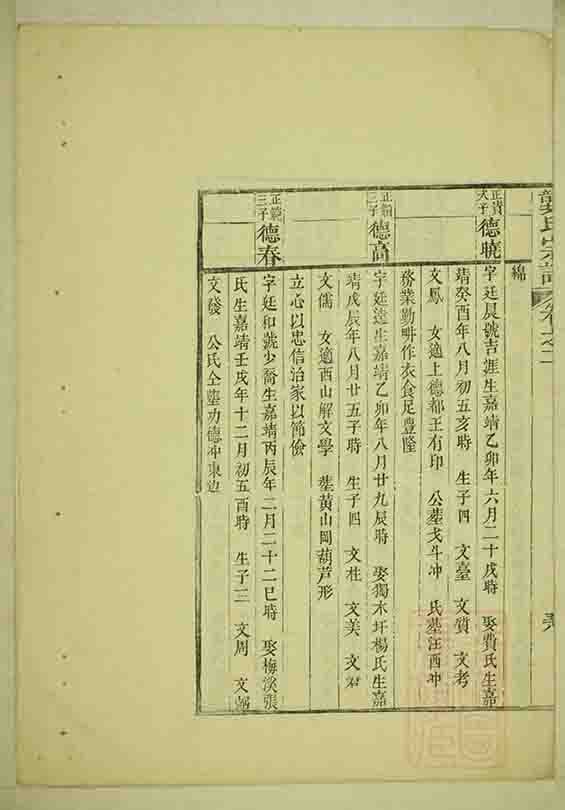 氏宗譜 卷之二
綿
正貴
大子
德曉
字廷晨號吉涯生嘉靖乙卯年六月二十戌時 娶費氏生嘉
靖癸酉年八月初五亥時 生子四 文臺 文質 文考
文鳳 女適上德都王有印 公塟戈斗冲 氏塟汪西冲
務業勤畊作衣食足豐隆
正
二子
德高
字廷遠生嘉靖乙卯年八月廿九辰時 娶獨木圩楊氏生嘉
靖戊辰年八月廿五子時 生子四 文柱 文美 文
文儒 女適西山解文學 塟黃山岡葫芦形
立心以忠信治家以簡儉
正
三子
德春
字廷和號少喬生嘉靖丙辰年二月二十二巳時 娶梅淡張
氏生嘉靖壬戌年十二月初五酉時 生子三 文周 文
文發 公氏仝塟功德冲東边